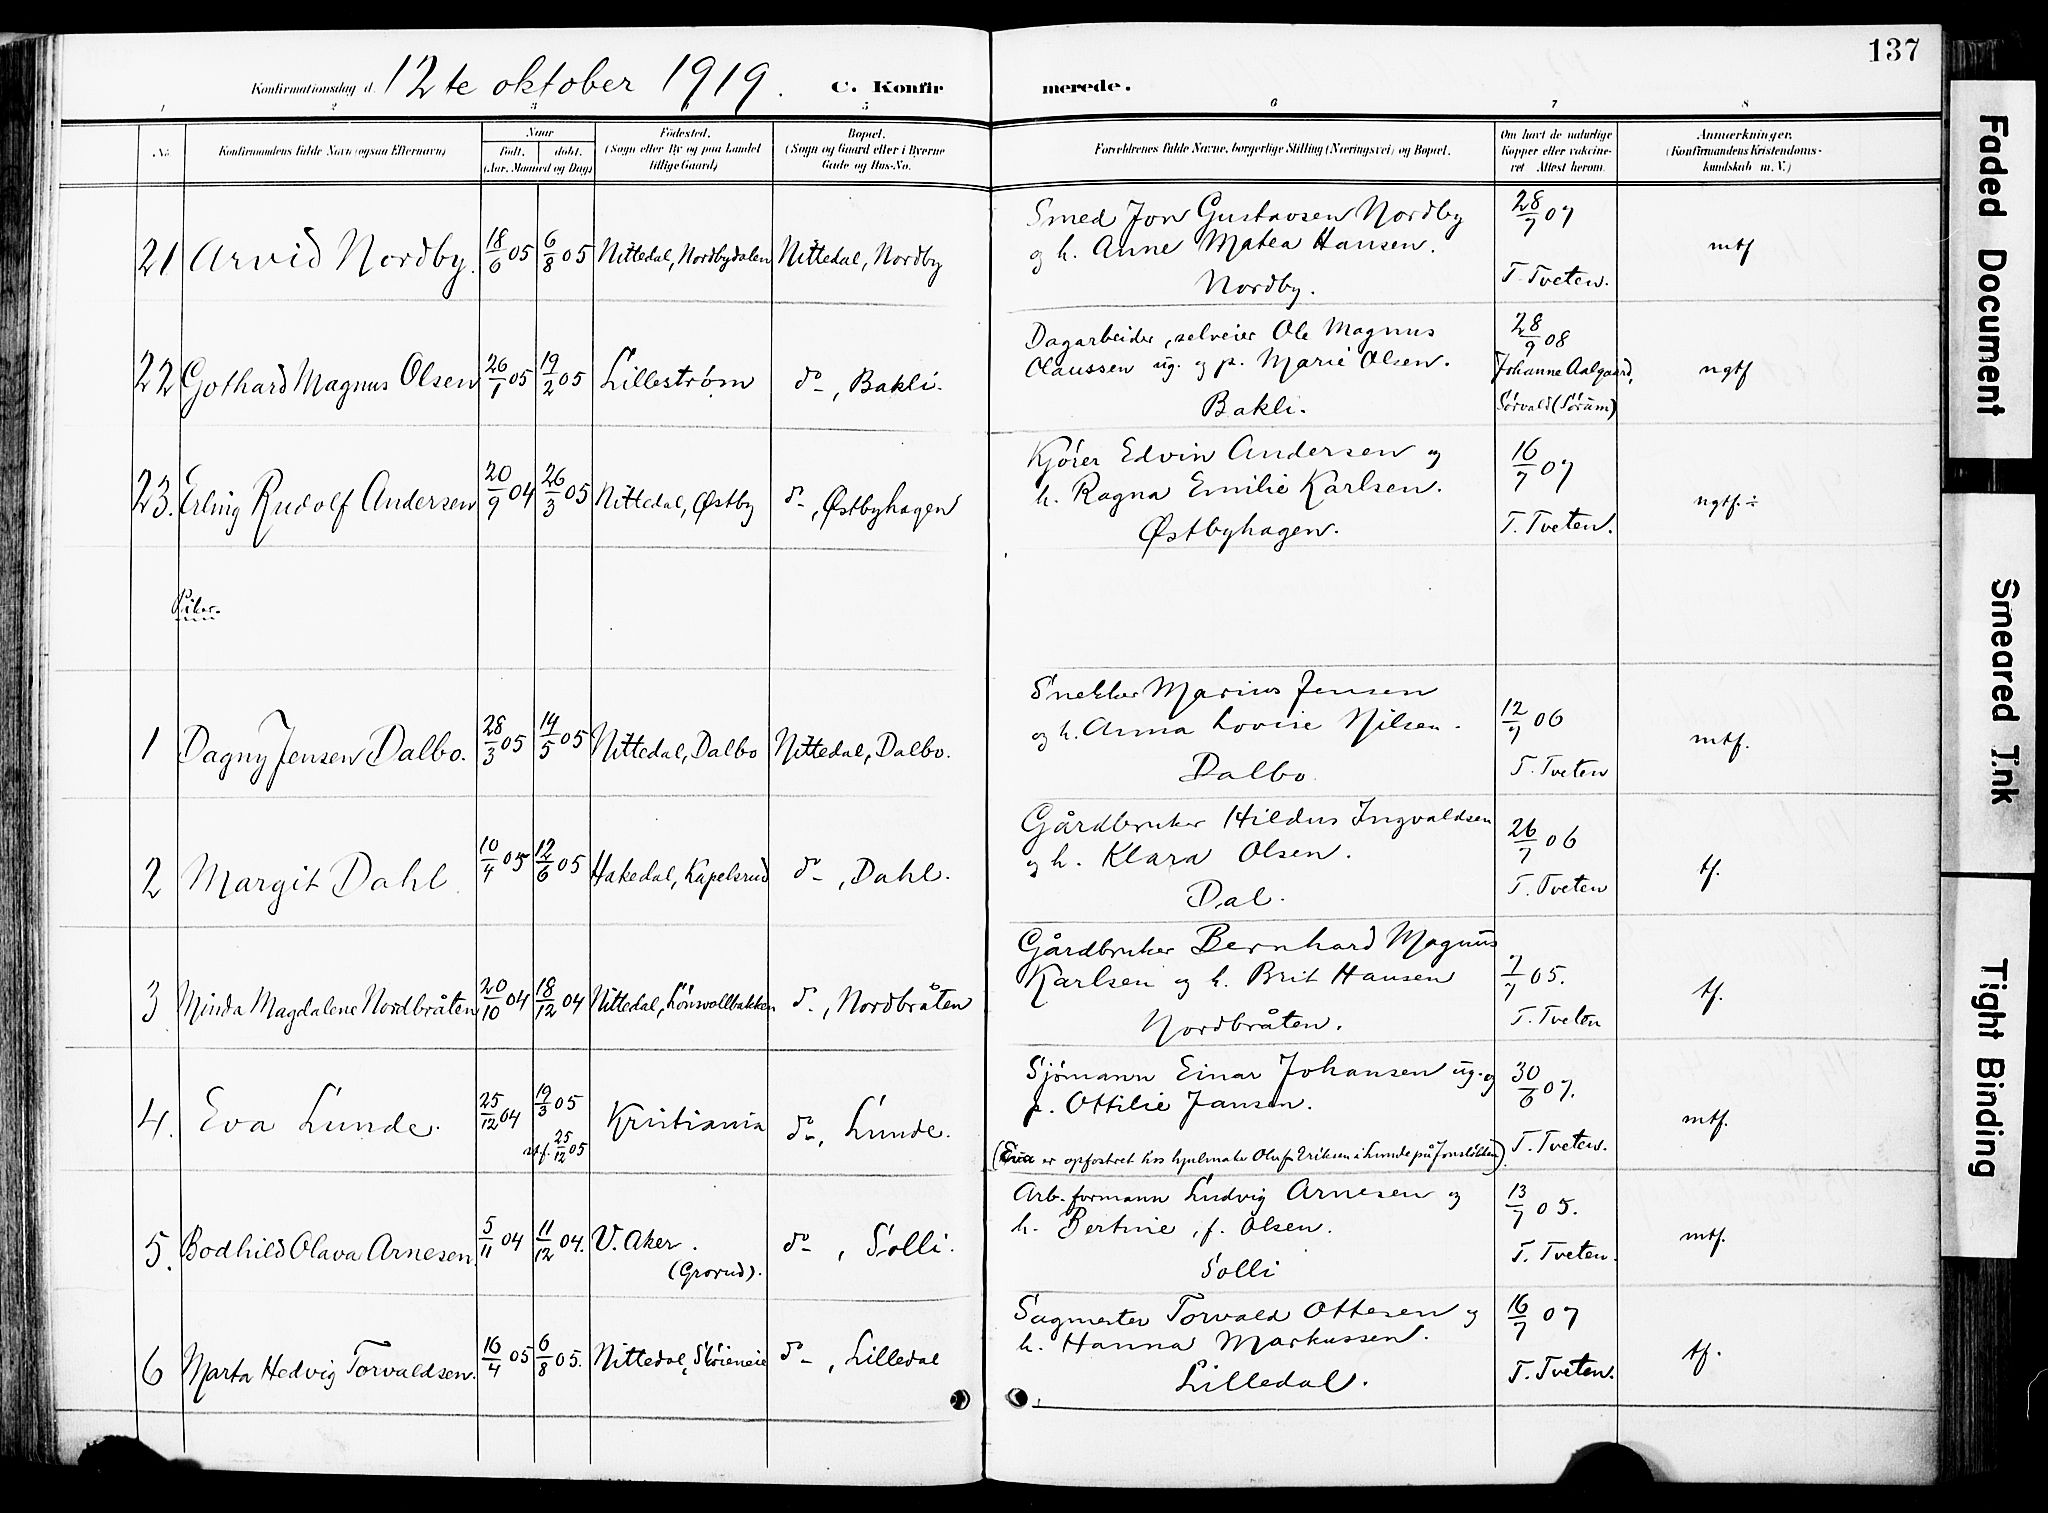 137
Konfirmationsdag d. 12te oktober 1919. C. Konfirmerede.
1 2 3 4 5 6 7 8
No.
Konfirmandens fulde Navn (ogsaa Efternavn)
Naar
født. døbt.
(Aar, Maaned og Dag)
Fødested.
(Sogn eller By og paa Landet
tillige Gaard)
Bopæl.
(Sogn og Gaard eller i Byerne
Gade og Hus-No.
Forældrenes fulde Navne, borgerlige Stilling (Næringsvei) og Bopæl.
Om havt de naturlige
Kopper eller vaccineret
Attest herom.
Anmærkninger.
(Konfirmandens Kristendomskundskab
m. V.)
21 Arvid Nordby. 18/6 05 6/8 05 Nittedal, Nordbydalen Nittedal, Nordby
Smed Jon Gustavsen Nordby
og h. Anne Matea Hansen.
Nordby.
28/7 07
T. Tveten.
mtf
22 Gothard Magnus Olsen 26/1 05 19/2 05 Lillestrøm do, Bakli.
Dagarbeider, selveier Ole Magnus
Olaussen ug. og p. Marie Olsen.
Bakli.
28/9 08
Johanne Aalgaard,
Sørvald (Sørum)
ngtf
23. Erling Rudolf Andersen 20/9 04 26/3 05 Nittedal, Østby do, Østbyhagen
Kjører Edvin Andersen og
h. Ragna Emilie Karlsen.
Østbyhagen.
16/7 07
T. Tveten.
ngtf. ÷
Piker.
1 Dagny Jensen Dalbo. 28/3 05 14/5 05 Nittedal, Dalbo Nittedal, Dalbo.
Snekker Marius Jensen
og h. Anna Lovise Nilsen.
Dalbo
12/7 06
T. Tveten
mtf.
2 Margit Dahl 10/4 05 12/6 05 Hakedal, Kapelsrud do, Dahl.
Gårdbruker Hildus Ingvaldsen
og h. Klara Olsen.
Dal.
26/7 06
T. Tveten
tf.
3 Minda Magdalene Nordbråten 20/10 04 18/12 04 Nittedal, Lönvollbakken do, Nordbråten
Gårdbruker Bernhard Magnus
Karlsen og h. Brit Hansen
Nordbråten.
7/7 05.
T. Tveten
tf.
4. Eva Lunde. 25/12 04 19/3 05 Kristiania do, Lunde.
stf. 25/12 05
Sjømann Einar Johansen ug. og
p. Ottilie Jansen.
(Eva er opfostret hos hjulmaker Oluf Eriksen i Lunde på)
30/6 07.
T. Tveten.
mtf.
5. Bodhild Olava Arnesen 5/11 04 11/12 04. V. Aker. do, Solli.
(Grorud).
Arb. formann Ludvig Arnesen og
h. Bertine, f. Olsen.
Solli
13/7 05.
T. Tveten.
mtf.
6 Marta Hedvig Torvaldsen. 16/4 05 6/8 05. Nittedal, do, Lilledal
Sagmester Torvald Ottesen og
h. Hanna Markussen.
Lilledal.
16/7 07
T. Tveten.
tf.
Faded Document
Smeared Ink
Tight Binding